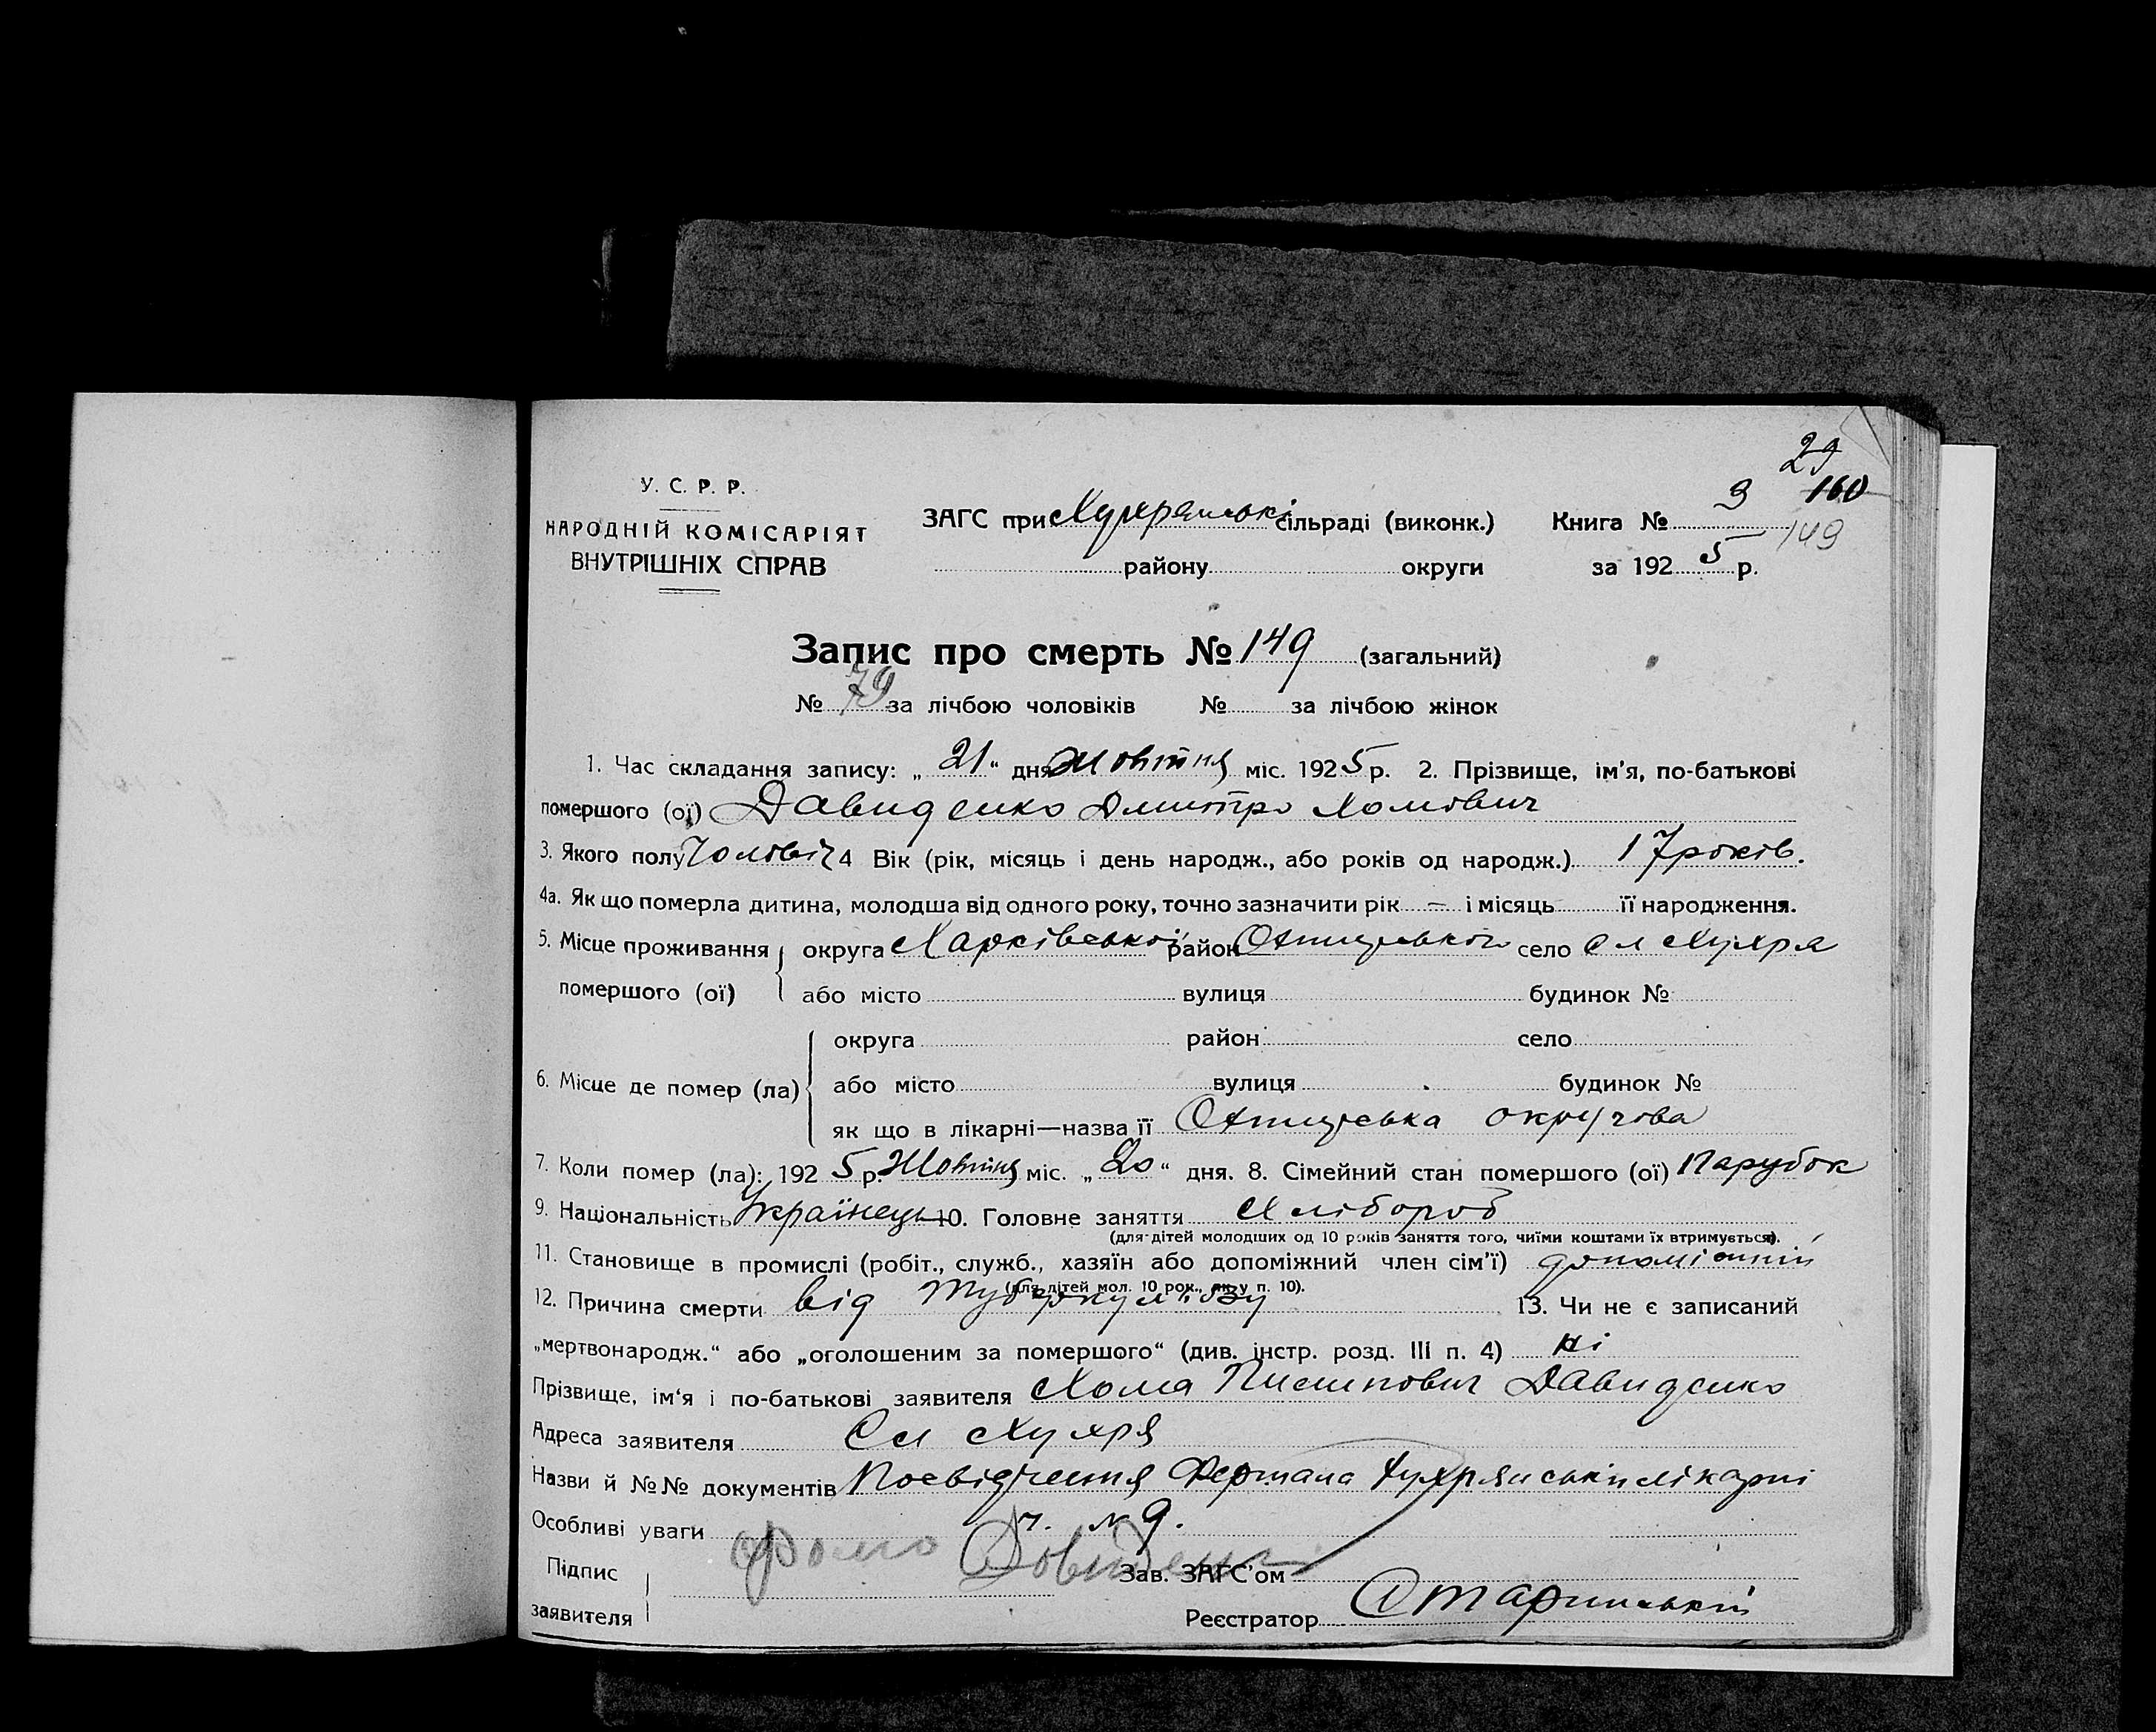 29
У. С. Р. Р.
НАРОДНІЙ КОМІСАРІЯТ
ВНУТРІШНІХ СПРАВ
ЗАГС при Хухрянські сільраді (виконк.) Книга № 3 160
149
району округи за 192 5 р.
Запис про смерть № 149 (загальний)
№ 79 за лічбою чоловіків № за лічбою жінок
1. Час складання запису: „ 21 “ дня Жовтня міс. 192 5 р. 2. Прізвище, ім'я, по-батькові
помершого (ої) Давиденко Дмитро Хомович
3. Якого полу Чоловіч 4 Вік (рік, місяць і день народж., або років од народж.) 17 років.
4а. Як що померла дитина, молодша від одного року, точно зазначити рік — і місяць її народження.
5. Місце проживання округа Харківської район Охтирьского село Сл Хухря
помершого (ої) або місто вулиця будинок №
округа район село
6. Місце де помер (ла) або місто вулиця будинок №
як що в лікарні—назва її Охтирська округова
7. Коли помер (ла): 192 5 р. Жовтня міс. „ 20 “ дня. 8. Сімейний стан помершого (ої) Парубок
9. Національність Українець 10. Головне заняття Хлібороб
(для дітей молодших од 10 років заняття того, чиїми коштами їх втримується).
11. Становище в промислі (робіт., служб., хазяїн або допоміжний член сім'ї)
(для дітей мол. 10 рок., як у п. 10).
12. Причина смерти від Туберкульозу 13. Чи не є записаний
„мертвонародж.“ або „оголошеним за помершого“ (див. інстр. розд. III п. 4) ні
Прізвище, ім'я і по-батькові заявителя Хома Пилипович Давиденко
Адреса заявителя Сл Хухря
Назви й №№ документів Посвідчення Фершала Хухрянськи лікарні
Особливі уваги ч. № 9.
Підпис Фома Довиденко Зав. ЗАГС'ом
заявителя Реєстратор